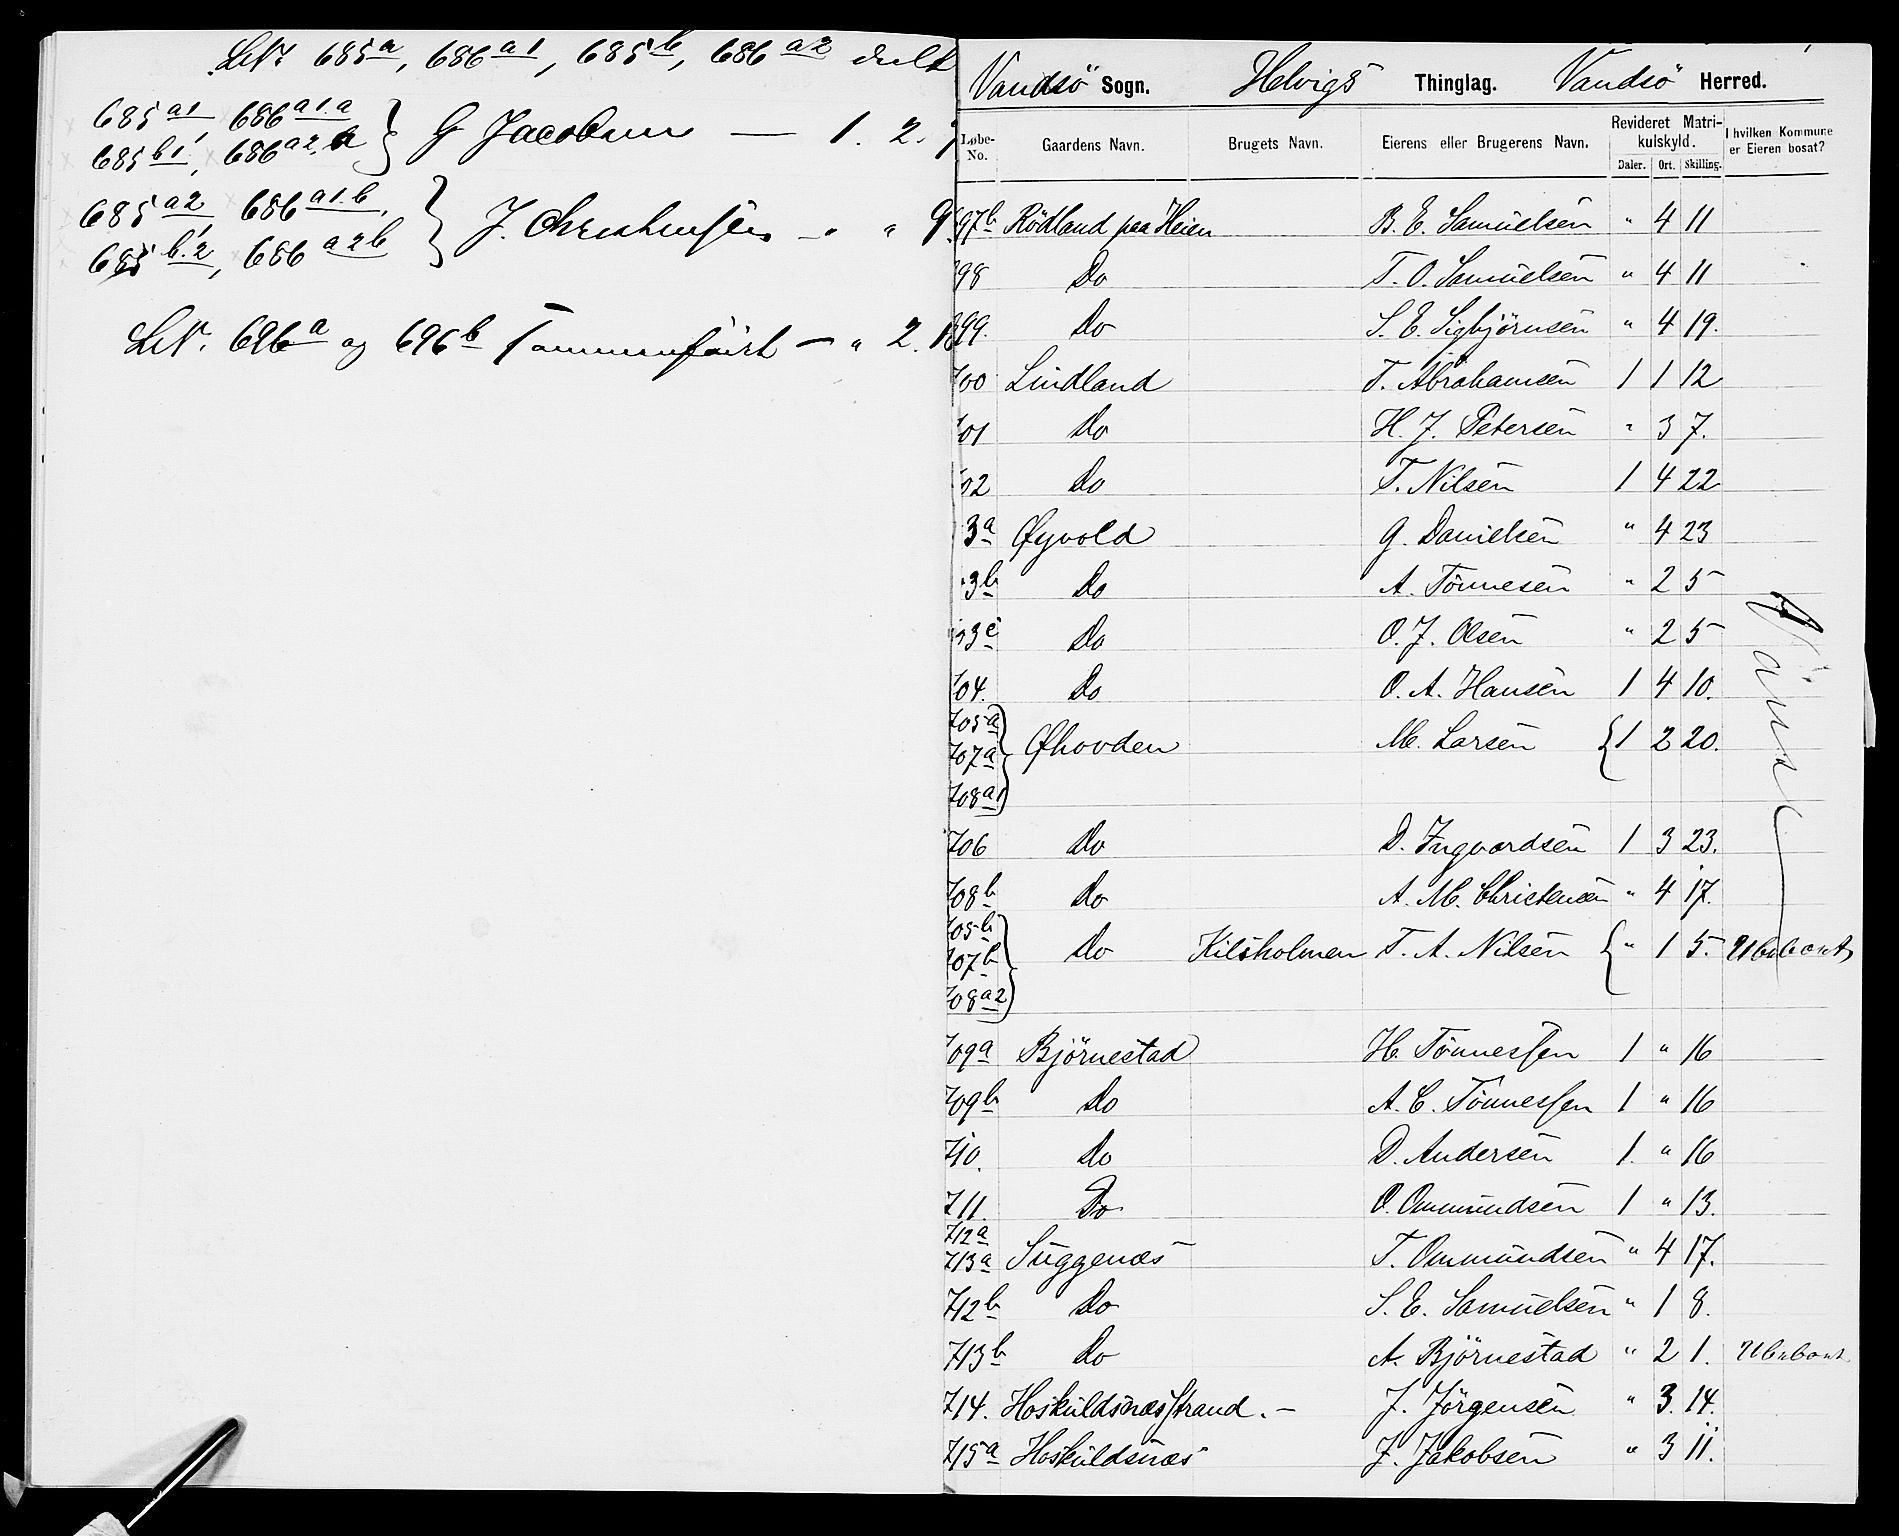 LN. 685a, 686a1, 685b, 686a2 delt
685a1, 686a1.a
685b1, 686a2.a } G Jacobsen — 1. 2.
685a2, 686a1.b,
685b.2, 686a2b } J. Christensen - " 9
LN. 696a og 696b sammenført — " 2.
Vandsö Sogn. Helvigs Thinglag. Vandsö Herred.
Løbe-No. Gaardens Navn. Brugets Navn. Eierens eller Brugerens Navn. Revideret Matrikulskyld. I hvilken Kommune er Eieren bosat?
Daler. Ort. Skilling.
97b Rödland paa Heien B. E. Samuelsen " 4 11
98 Do T. O. Samuelsen " 4 11
99. Do S. E. Sigbjörnsen " 4 19.
700 Lindland T. Abrahamsen 1 1 12
01 Do H. J. Petersen " 3 7.
02 Do T. Nilsen 1 4 22
3a Øyvold G. Danielsen " 4 23
3b Do A. Tönnesen " 2 5
3c Do O. J. Olsen " 2 5
04. Do O. A. Hansen 1 4 10.
705a
707a Øhovden M. Larsen 1 2 20.
708a1
706 Do D. Ingvardsen 1 3 23.
708b Do A. M. Christensen " 4 17.
705b
707b Do Kilsholmen T. A. Nilsen " 1 5. Ubeboet
708a2
709a Björnestad H. Tönnessen 1 " 16
709b Do A. C. Tönnessen 1 " 16
710. Do D. Andersen 1. " 16
711. Do O. Ommundsen 1 " 13.
712a
713a Suggenæs T. Ommundsen " 4 17.
712b Do S. E. Samuelsen " 1 8.
713b Do A. Björnestad " 2 1. Ubeboet
714. Hoskuldsnæs Strand. - J. Jörgensen " 3. 14.
715a Hoskuldsnæs J. Jakobsen " 3 11.